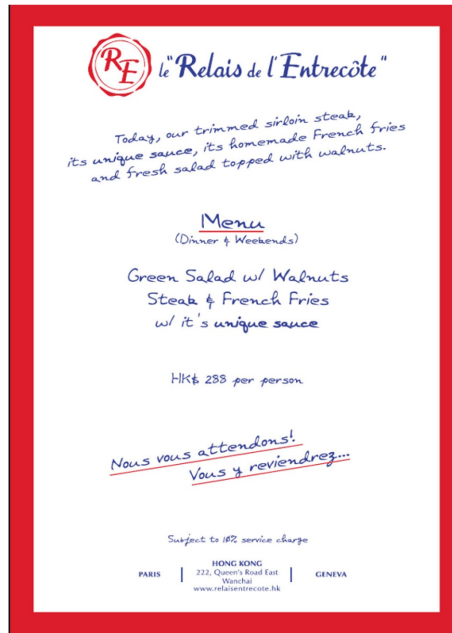 RE
le "Relais de l'Entrecôte"
Today, our trimmed sirloin steak,
its unique sauce, its homemade French fries
and fresh salad topped with walnuts.
Menu
(Dinner & Weekends)
Green Salad w/ Walnuts
Steak & French Fries
w/ it's unique sauce
HK$ 288 per person
Nous vous attendons!
Vous y reviendrez...
Subject to 10% service charge
PARIS
HONG KONG
222, Queen's Road East
Wanchai
www.relaisentrecote.hk
GENEVA